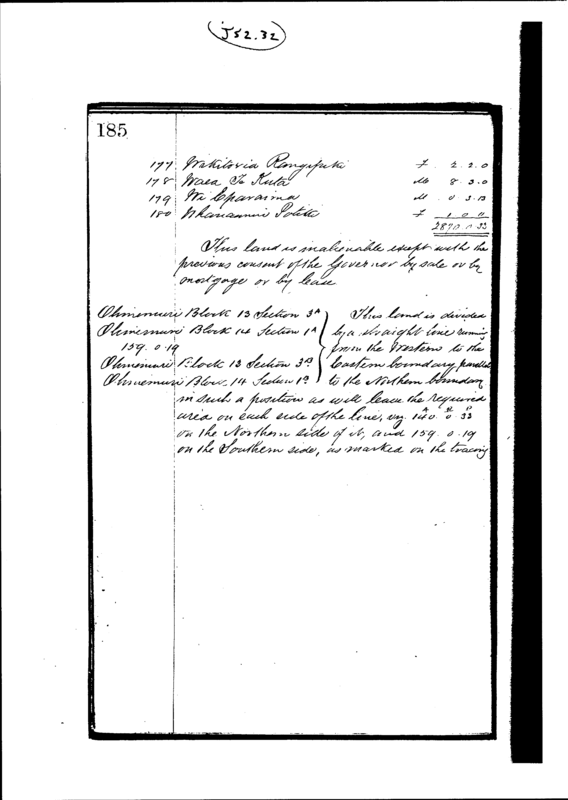 J52.32
185
177 Wikitoria Rangipuki F 2.2.0
178 Waea Te Kuta M 8.3.0
179 Wi M 0 3.13
180 F 1 0 0
2870.0.33
This land is inalienable except with the
previous consent of the Governor by sale or by
mortgage or by lease
Ohinemuri Block 13 Section 3A
Ohinemuri Block 14 Section 1A
159.0.19
Ohinemuri Block 13 Section 3B
Ohinemuri Block 14 Section 1B
This land is divided
by a straight line running
from the Western to the
Eastern boundary parallel
to the Northern boundary
in such a position as will leave the required
area on each side of the line, viz 140 A 0 R 33 P
on the Northern side of it, and 159.0.19
on the Southern side, as marked on the tracing